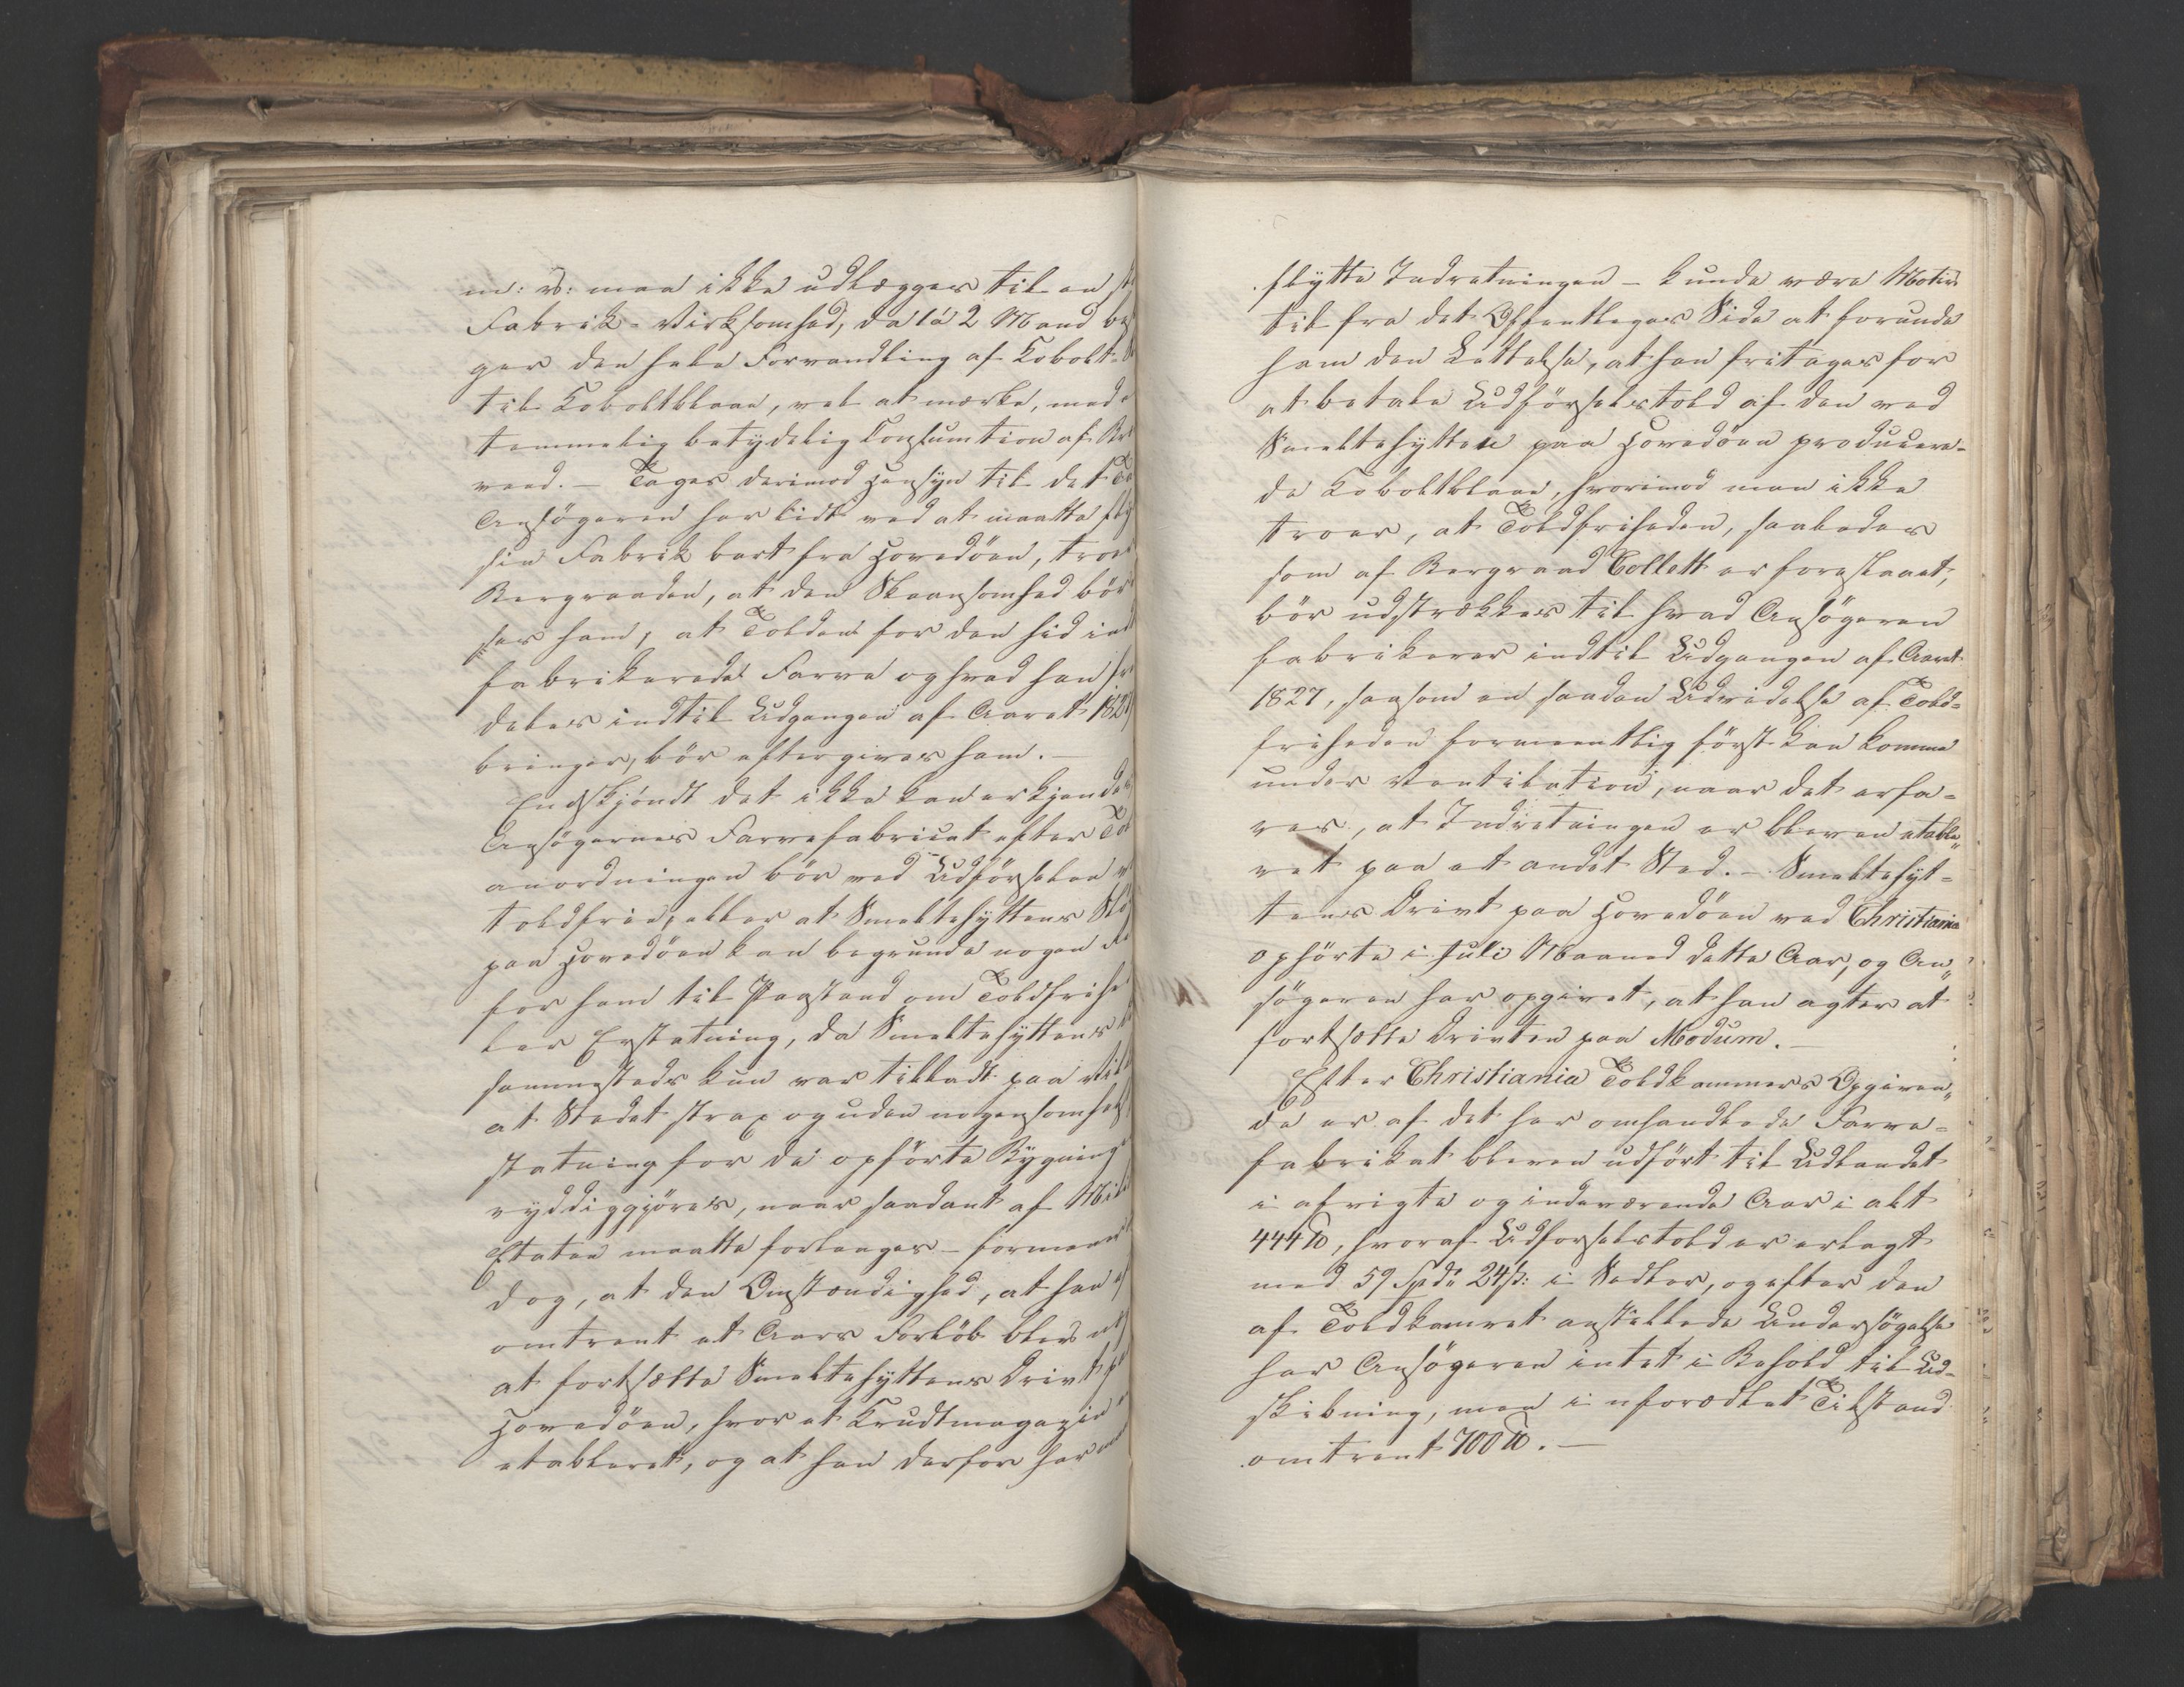 m: v: maa ikke udlægges til en
Fabrik-Virksomhed, da 1 à 2 Mand
ger den hele Forvandling af Kobolt-
til Koboltblaae, vel at mærke, med
temmelig betydelig Consumtion af
veed. — Tages derimod Hensyn til det
Ansögeren har lidt ved at maatte
sin Fabrik bort fra Hovedöen, troer
Bergraaden, at den Skaansomhed bör
ses ham, at Tolden for den hid ind
fabrikerede Farve og hvad han
deles indtil Udgangen af Aaret 182
bringer, bör eftergives ham. —
Endskjöndt det ikke kan erkjendes
Ansögernes Farvefabricat efter
anordningen bör ved Udförselen
toldfrie, eller at Smeltehyttens
paa Hovedöen kan begrunde nogen
for ham til Paastand om Toldfrihe
ler Erstatning, da Smeltehyttens
sammesteds kun var tilladt paa
at Stedet strax og uden nogensomhelst
statning for de opförte Bygninge
ryddiggjöres, naar saadant af
Etaten maatte forlanges – formeener
dog, at den Omstændighed, at han
omtrent et Aars Forlöb blev
at fortsætte Smeltehyttens Drivt
Hovedöen, hvor et Krudtmagazin
etableret, og at han derfor har
flytte Indretningen – kunde være Motiv
til fra det Offentliges Side at forunde
ham den Lettelse, at han fritages for
at betale Udförselstold af den ved
Smeltehytten paa Hovedöen producere-
de Koboltblaae, hvorimod man ikke
troer, at Toldfriheden, saaledes
som af Bergraad Collett er foreslaaet,
bör udstrækkes til hvad Ansögeren
fabrikerer indtil Udgangen af Aaret
1827, saasom en saadan Udvidelse af Told-
friheden formeentlig först kan komme
under Ventilation, naar det erfa-
res, at Indretningen er bleven etable„
ret paa et andet Sted. – Smeltehyt-
tens Drivt paa Hovedöen ved Christiania
ophörte i Juli Maaned dette Aar, og An„
sögeren har opgivet, at han agter at
fortsætte Drivten paa Modum. —
Efter Christiania Toldkammers Opgiven„
de er af det her omhandlede Farve-
fabrikat bleven udfört til Udlandet
i afvigte og indeværende Aar i alt
444 ℔, hvoraf Udforselstold er erlagt
med 59 Spd: 24 ß: i Sedler, og efter den
af Toldkamret anstillede Undersögelse
har Ansögeren intet i Behold til Ud-
skibning, men i uforædlet Tilstand
omtrent 700 ℔. —